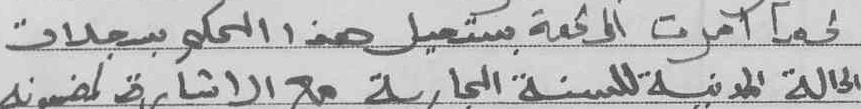 كما أمرت المحكمة بتسجيل هذا الحكم بسجلات
الحالة المدنية للسنة الجارية مع الاشارة لمضمونه